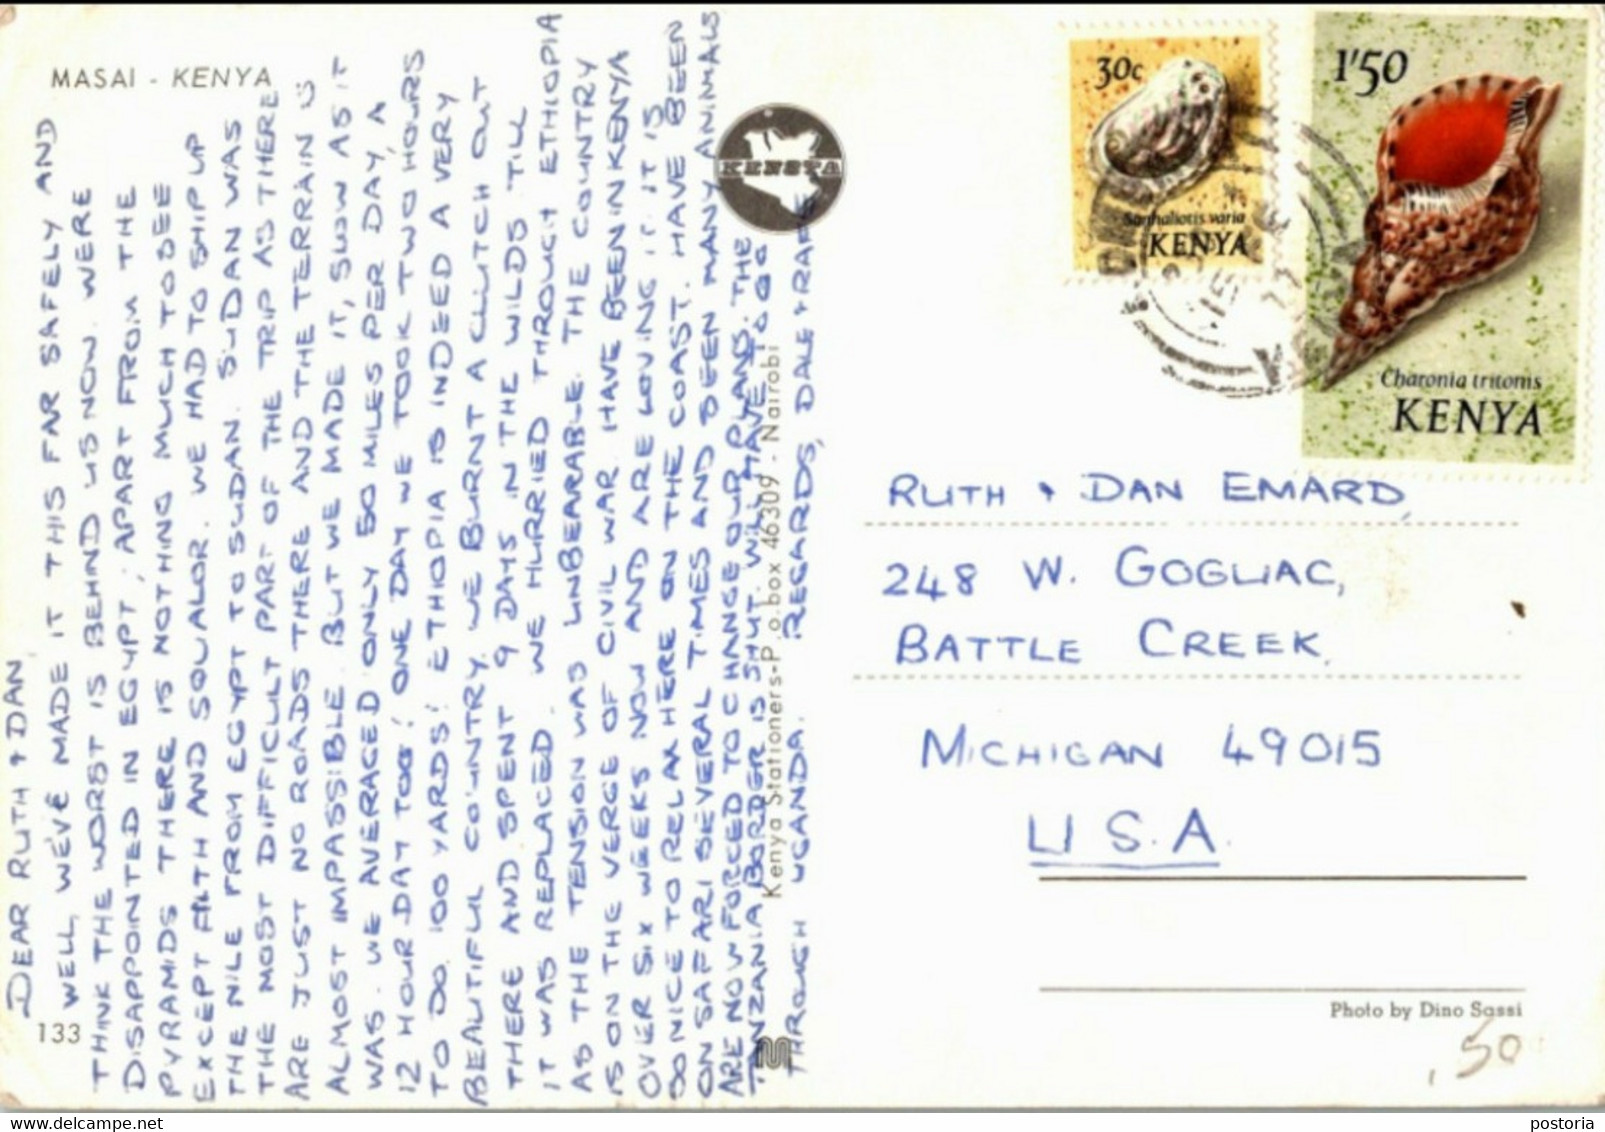 MASAI - KENYA
DEAR RUTH + DAN,
WELL, WE'VE MADE IT THIS FAR SAFELY AND
THINK THE WORST IS BEHIND US NOW. WERE
DISAPPOINTED IN EGYPT; APART FROM THE
PYRAMIDS THERE IS NOTHING MUCH TO SEE
EXCEPT FILTH AND SQUALOR. WE HAD TO SHIP UP
THE NILE FROM EGYPT TO SUDAN. SUDAN WAS
THE MOST DIFFICULT PART OF THE TRIP AS THERE
ARE JUST NO ROADS THERE AND THE TERRAIN IS
ALMOST IMPASSIBLE. BUT WE MADE IT, SLOW AS IT
WAS. WE AVERAGED ONLY 50 MILES PER DAY, A
12 HOUR DAY TOO! ONE DAY WE TOOK TWO HOURS
TO DO 100 YARDS! ETHOPIA IS INDEED A VERY
BEAUTIFUL COUNTRY. WE BURNT A CLUTCH OUT
THERE AND SPENT 9 DAYS IN THE WILDS TILL
IT WAS REPLACED. WE HURRIED THROUGH ETHIOPIA
AS THE TENSION WAS UNBEARABLE. THE COUNTRY
IS ON THE VERGE OF CIVIL WAR. HAVE BEEN IN KENYA
OVER SIX WEEKS NOW AND ARE LOVING IT. IT IS
SO NICE TO RELAX HERE ON THE COAST. HAVE BEEN
ON SAFARI SEVERAL TIMES AND SEEN MANY ANIMALS
ARE NOW FORCED TO CHANGE OUR PLANS. THE
TANZANIA BORDER IS SHUT. WILL HAVE TO GO
THROUGH UGANDA. REGARDS, DALE +
133
KENSTA
Kenya Stationers-P.o.box 46309 - Nairobi
M
30c
Sanhaliotis varia
KENYA
1'50
Charonia tritonis
KENYA
RUTH + DAN EMARD,
248 W. GOGUAC,
BATTLE CREEK,
MICHIGAN 49015
U.S.A.
Photo by Dino Sassi
.50
postoria